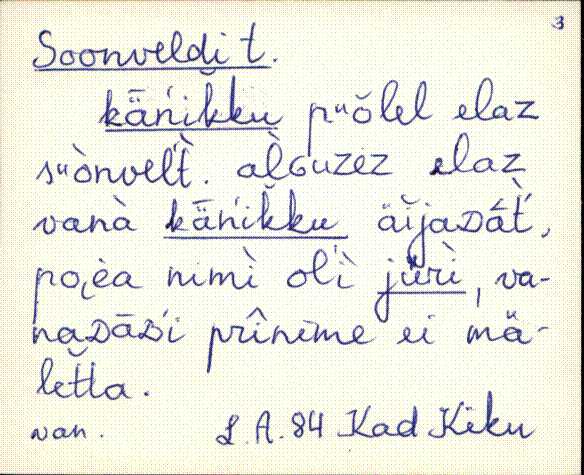 3
Soonveldi t.
kä̆ń̄ik̆ku pᵘŏlel elaz
sᵘònvel't̀. alGuzez elaz
vanà kä̆ń̄ik̆ku äi̯jaDát̀,
poi̯èa nimì ol'ì jürì, va-
naDāD'i prînìme ei mä-
let̆ta.
van. L.A. 84 Kad Kiku